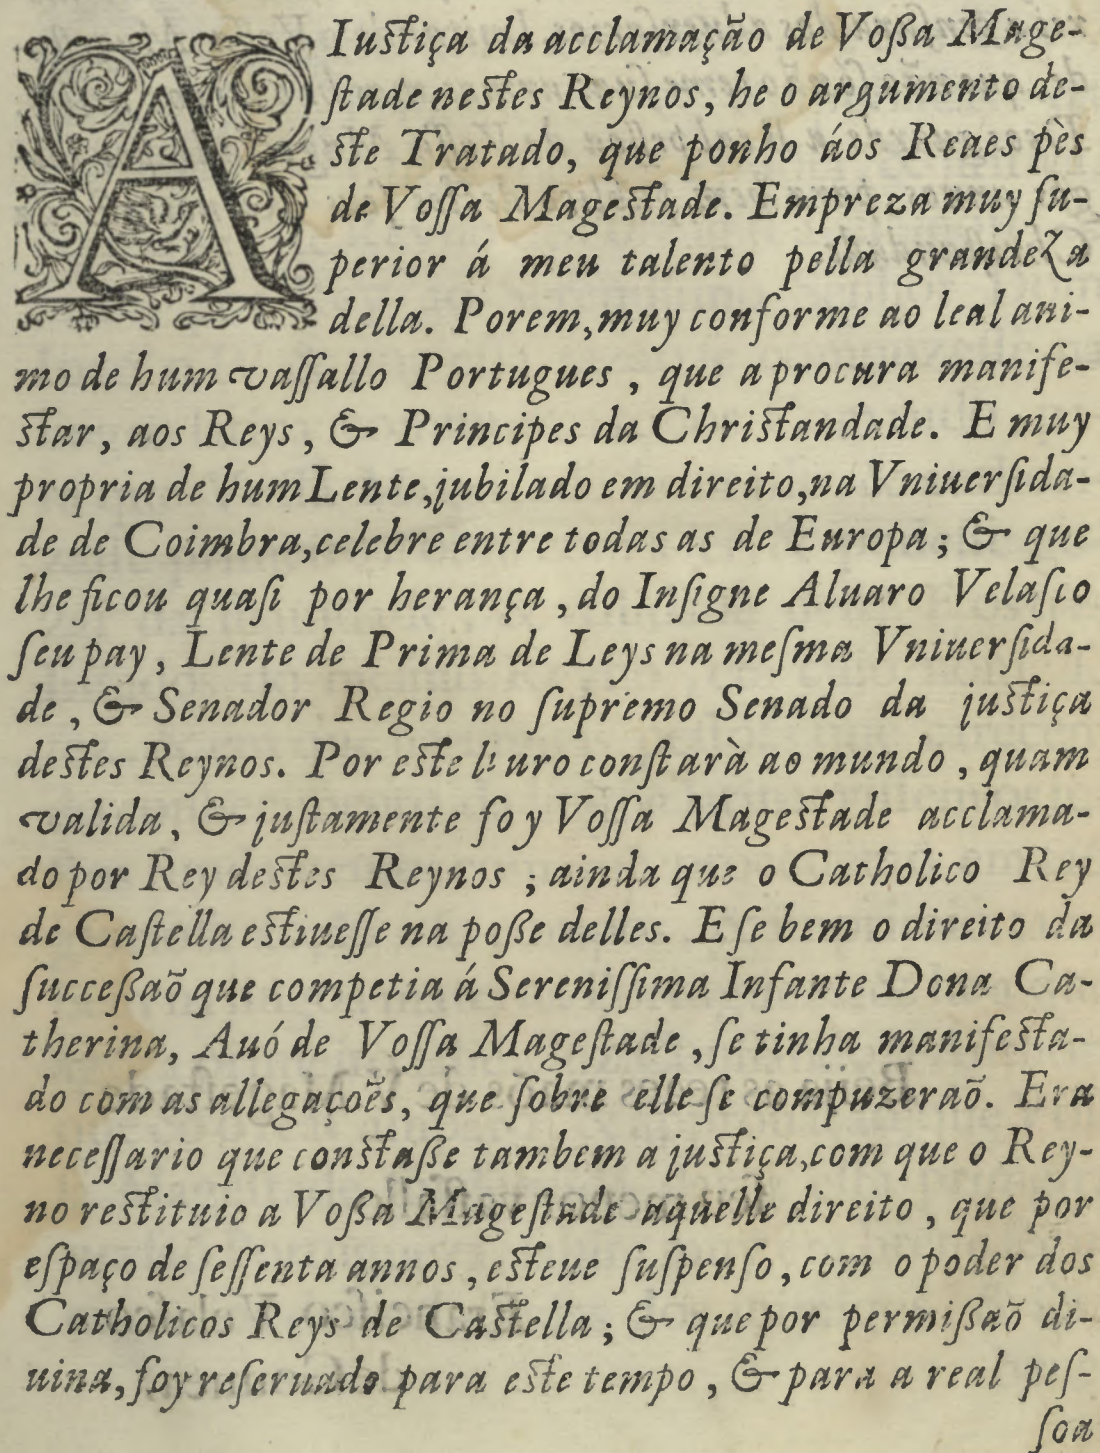 A Iustiça da acclamação de Voßa Mage-
ſtade nestes Reynos, he o argumento de-
ste Tratado, que ponho áos Reaes pès
de Voſſa Magestade. Empreza muy ſu-
perior á meu talento pella grandeza
della. Porem, muy conforme ao leal ani-
mo de hum vaſſallo Portugues, que a procura manife-
star, aos Reys, & Principes da Christandade. E muy
propria de hum Lente, jubilado em direito, na Vniuerſida-
de de Coimbra, celebre entre todas as de Europa; & que
lhe ficou quaſi por herança, do Inſigne Aluaro Velaſco
ſeu pay, Lente de Prima de Leys na meſma Vniuerſida-
de, & Senador Regio no ſupremo Senado da justiça
destes Reynos. Por este liuro conſtarà ao mundo, quam
valida, & juſtamente foy Voſſa Magestade acclama-
do por Rey destes Reynos; ainda que o Catholico Rey
de Caſtella estiueſſe na poße delles. E ſe bem o direito da
ſucceßaõ que competia á Sereniſſima Infante Dona Ca-
therina, Auó de Voſſa Mageſtade, ſe tinha manifesta-
do com as allegaçoẽs, que ſobre elle ſe compuzeraõ. Era
neceſſario que constaße tambem a justiça, com que o Rey-
no restituio a Voßa Mageſtade aquelle direito, que por
eſpaço de ſeſſenta annos, esteue ſuſpenſo, com o poder dos
Catholicos Reys de Castella; & que por permißaõ di-
uina, foy reſeruado para este tempo, & para a real peſ-
ſoa